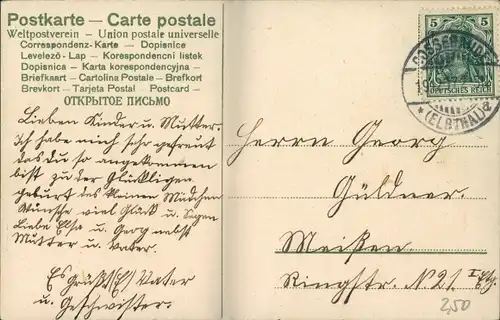 Postkarte — Carte postale
Weltpostverein — Union postale universelle
Correspondenz-Karte — Dopisnice
Levelező-Lap — Korespondencní listek
Dopisnica — Karta korespondencyjna —
Briefkaart — Cartolina Postale — Brefkort
Brevkort — Tarjeta Postal — Postcard —
ОТКРЫТОЕ ПИСЬМО
Lieben Kinder u. Mutter.
Ich habe mich sehr gefreut
das du so angekommen
bist zu der Glückligen
geburt des kleinen Mädchen
Wünsche viel Glück u. Segen
Liebe Elsa u. Georg nebst
Mutter u. Vater.
Es Grüßt(E) Vater
u. Geschwister.
5 5
DEUTSCHES REICH
COSSEBAUDE
*(ELBTHAL)a
Herrn Georg
Güldner.
Meißen
Ringstr. N 21 I Etg.
2,50